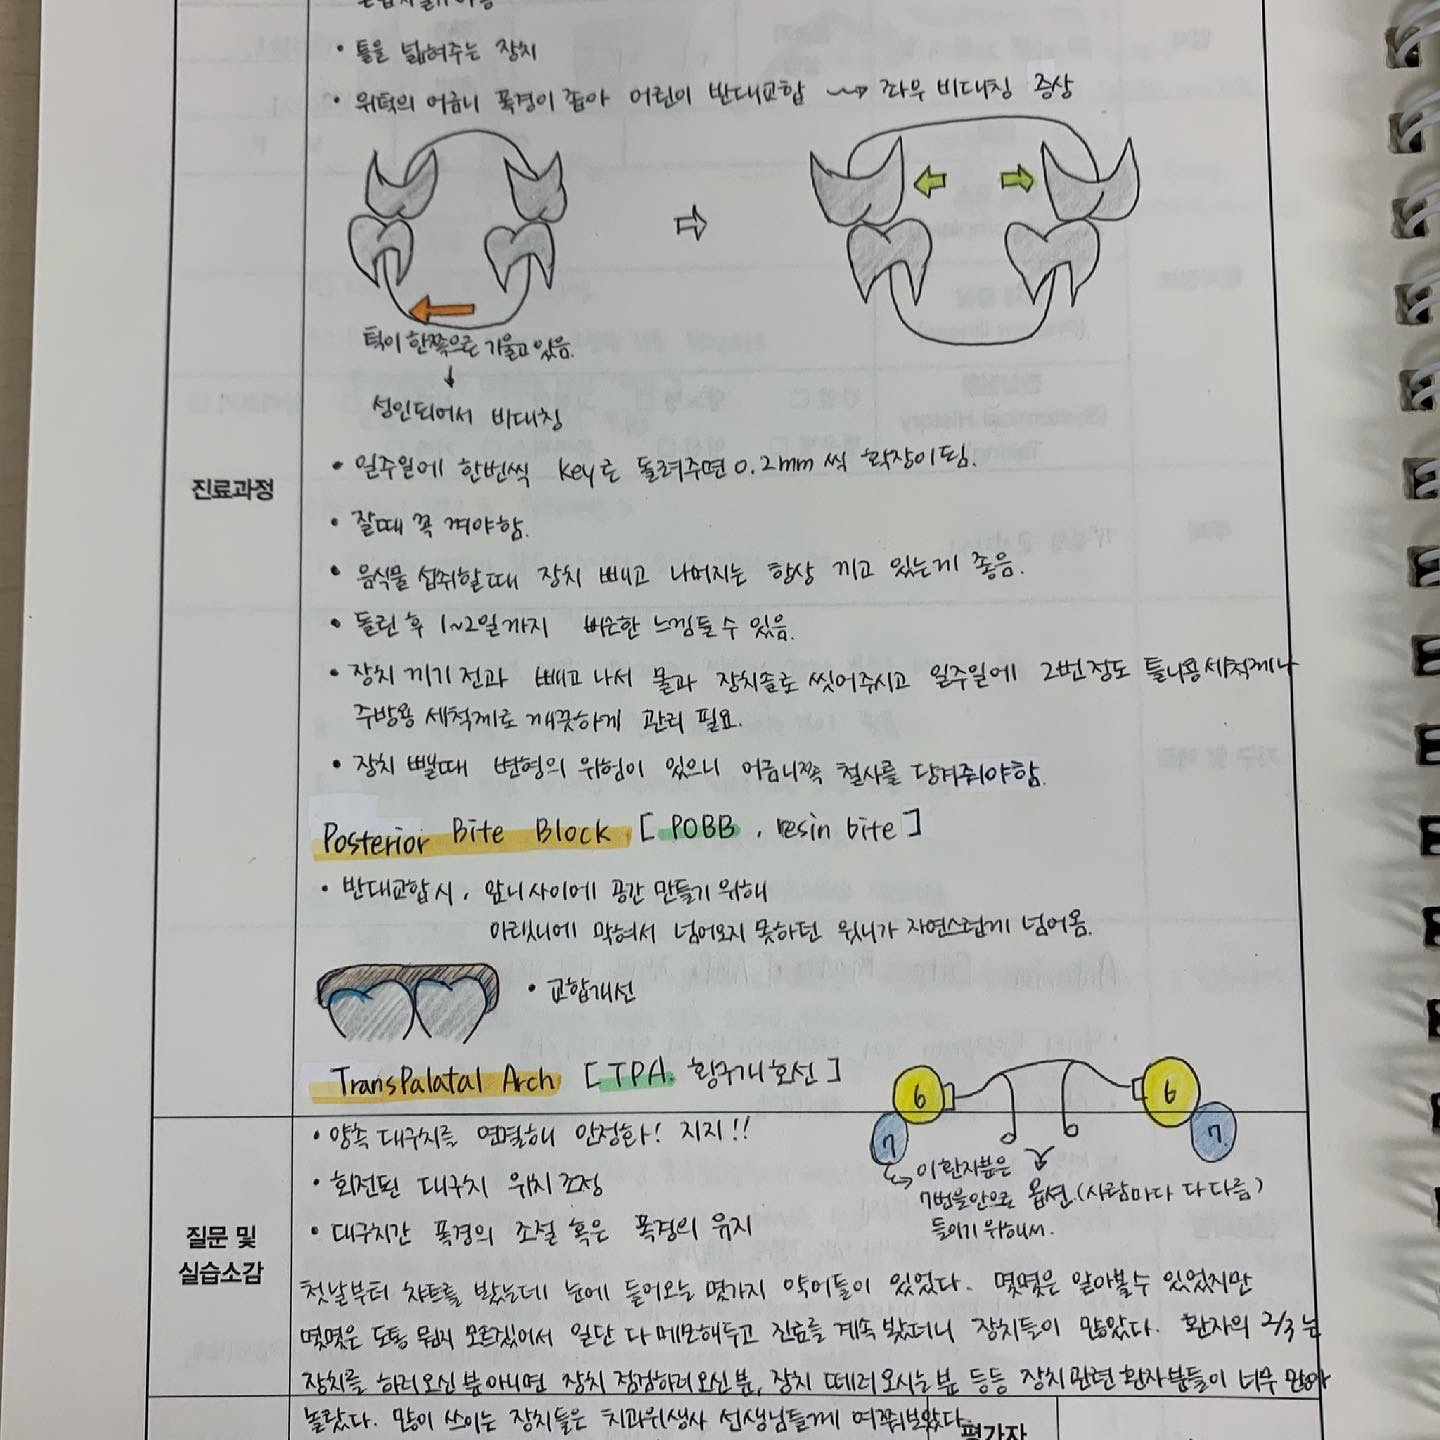 • 틀을 넓혀주는 장치
• 위턱의 어금니 폭경이 좁아 어린이 반대교합 ⇝ 좌우 비대칭 증상
턱이 한쪽으로 기울고 있음.
↓
성인되어서 비대칭
진료과정
• 일주일에 한번씩 key로 돌려주면 0.2mm 씩 확장이 됨.
• 잘때 꼭 껴야함.
• 음식물 섭취할때 장치 빼고 나머지는 항상 끼고 있는게 좋음.
• 돌린 후 1~2일까지 뻐근한 느낌들 수 있음.
• 장치 끼기 전과 빼고 나서 물과 장치솔로 씻어주시고 일주일에 2번정도 틀니용세척제나
주방용 세척제로 깨끗하게 관리 필요.
• 장치 뺄때 변형의 위험이 있으니 어금니쪽 철사를 당겨줘야함.
Posterior Bite Block [ POBB , resin bite ]
• 반대교합시, 앞니사이에 공간 만들기 위해
아랫니에 막혀서 넘어오지 못하던 윗니가 자연스럽게 넘어옴.
• 교합개선
TransPalatal Arch [ TPA. 횡구개호선 ]
6 6
7 7
• 양측 대구치를 연결해 안정화! 지지!!
↳ 이환자분은
7번을안으로
들이기 위해서.
옵션.(사람마다 다 다름)
• 회전된 대구치 위치 조정
• 대구치간 폭경의 조절 혹은 폭경의 유지
질문 및
실습소감
첫날부터 차트를 봤는데 눈에 들어오는 몇가지 약어들이 있었다. 몇몇은 알아볼수 있었지만
몇몇은 도통 뭔지 모르겠어서 일단 다 메모해두고 진료를 계속 봤더니 장치들이 많았다. 환자의 2/3는
장치를 하러오신 분 아니면 장치 점검하러 오신분, 장치 떼러 오시는 분 등등 장치관련 환자분들이 너무 많아
놀랐다. 많이 쓰이는 장치들은 치과위생사 선생님들께 여쭤보았다.
평가자